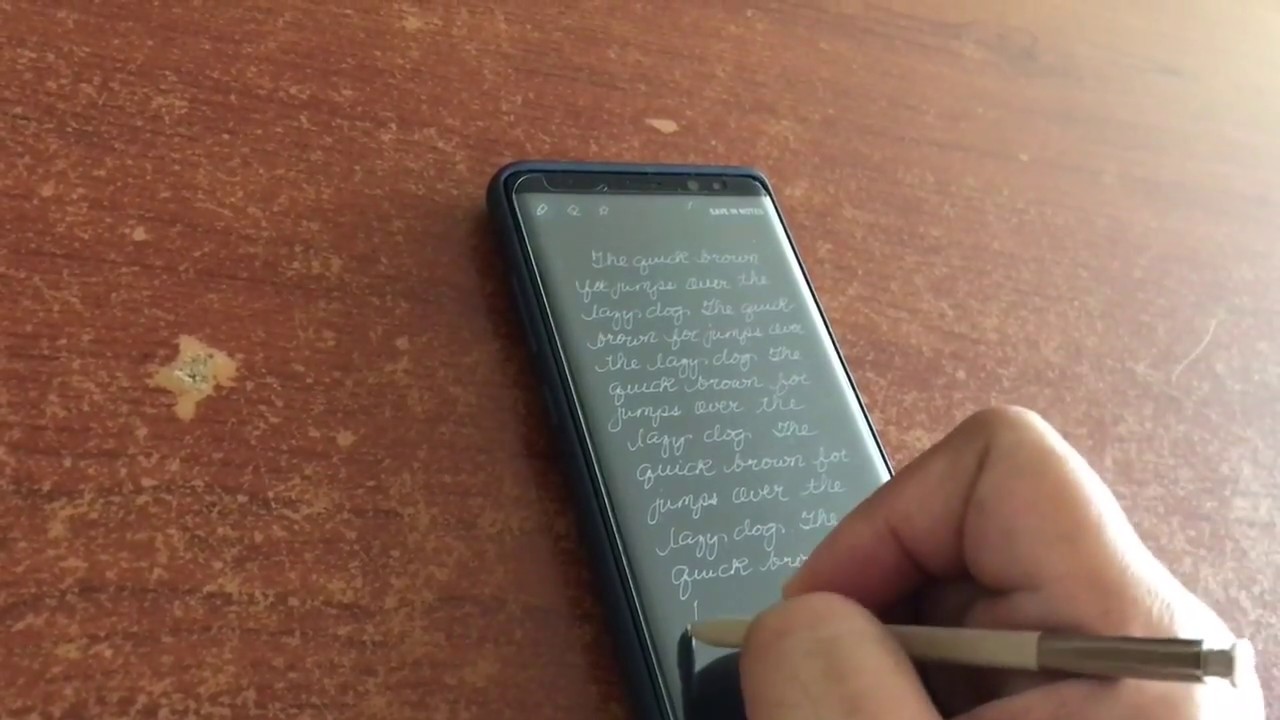 SAVE IN NOTES
The quick brown
fox jumps over the
lazy dog. The quick
brown fox jumps over
the lazy dog. The
quick brown fox
jumps over the
lazy dog. The
quick brown fox
jumps over the
lazy dog. The
quick